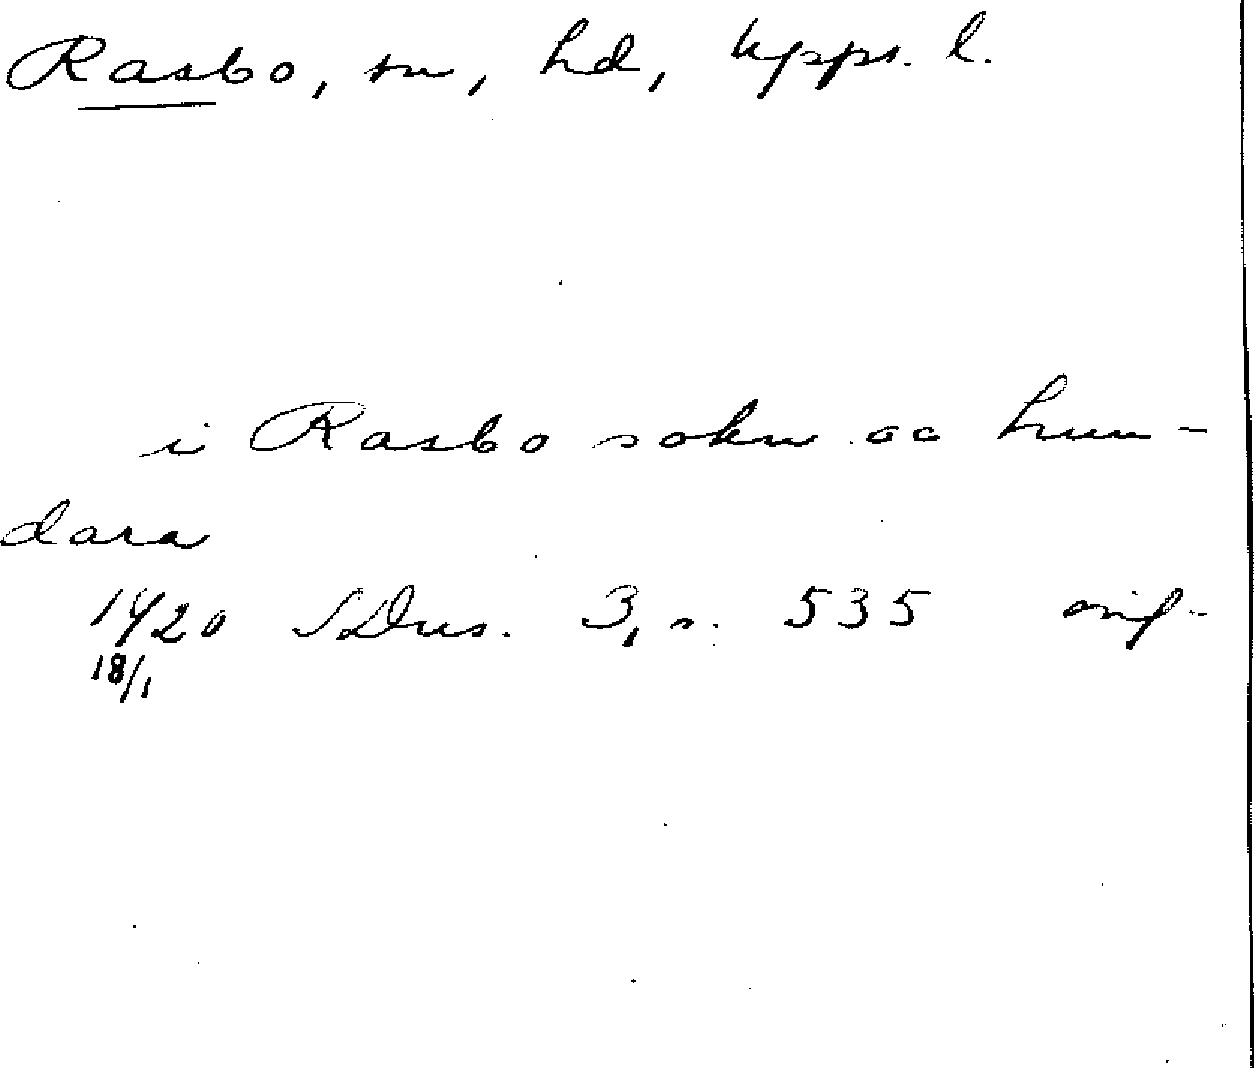 Rasbo, sn, hd, Upps. l.
i Rasbo sokn oc hun-
dara
1420 SDns. 3, s. 535 orig.
18/1